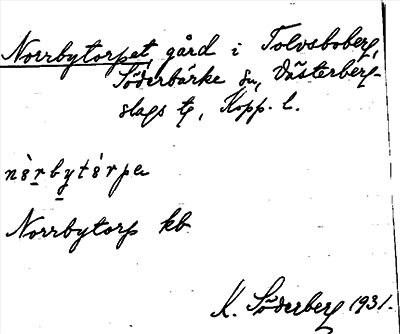 Norrbytorpet, gård i Tolvsboberg,
Söderbärke sn, Västerberg-
slags tg, Kopp. l.
nòrbytórpa
Norrbytorp kb
K. Söderberg 1931.